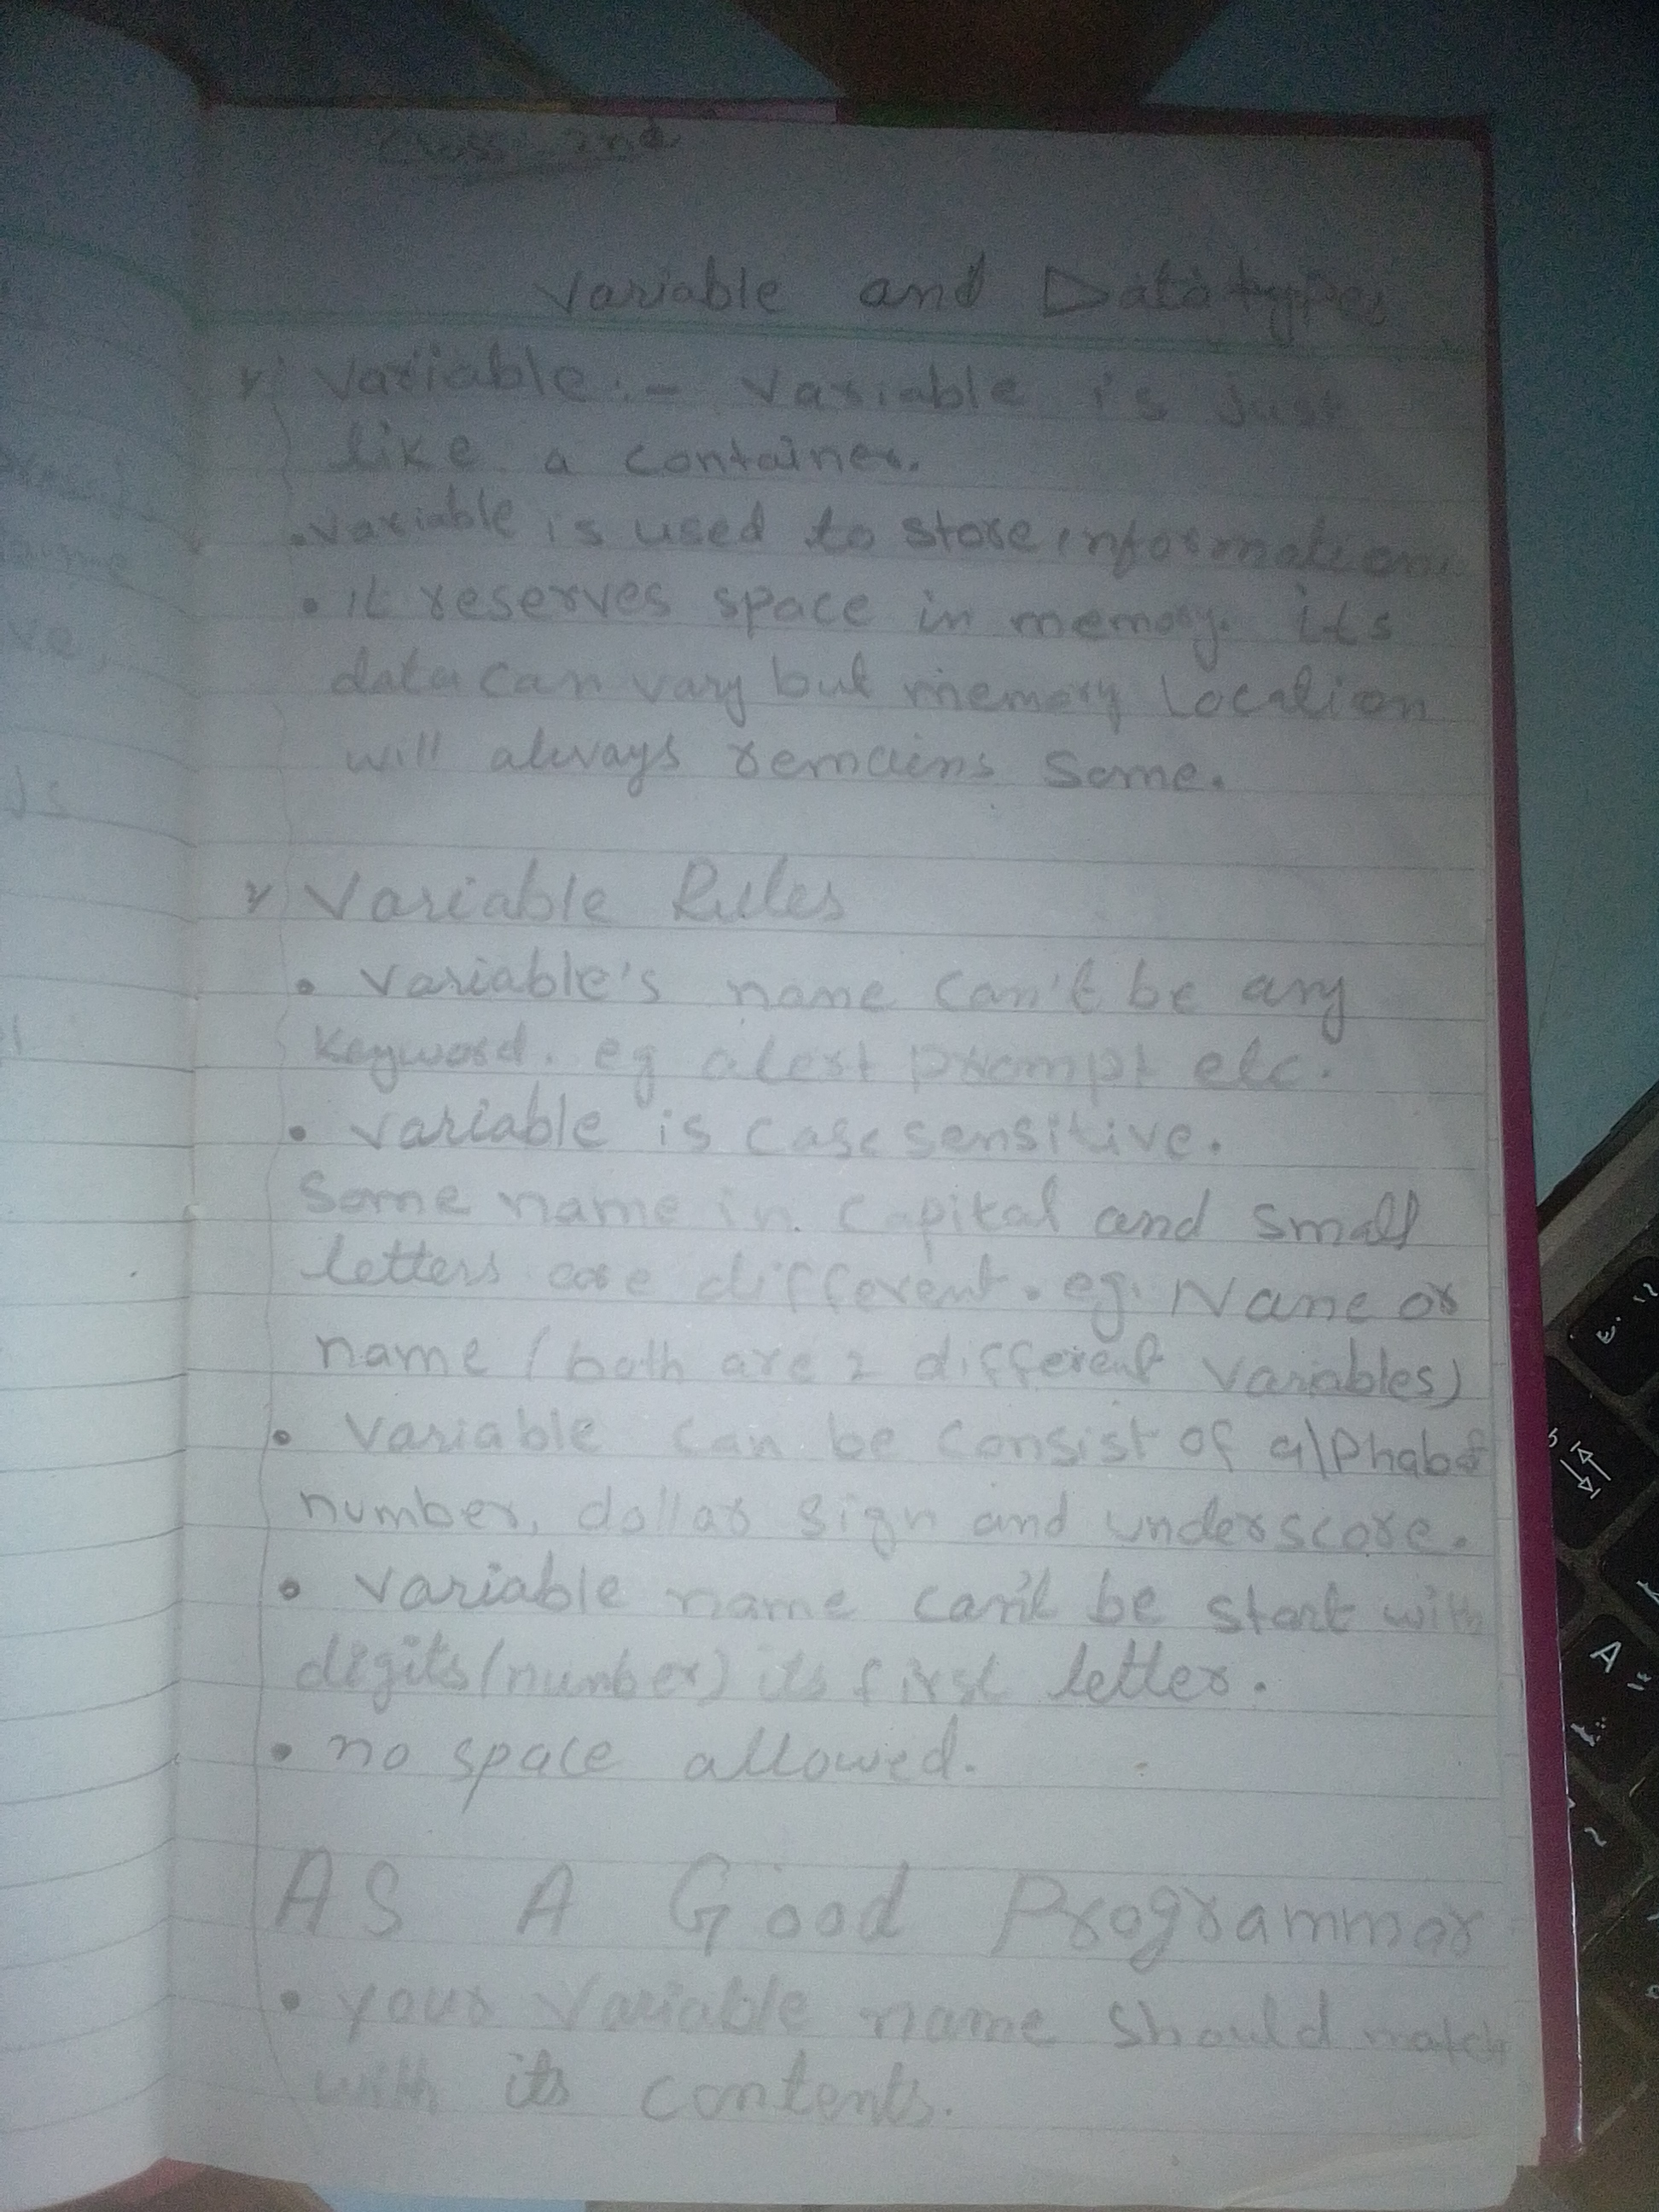 Class 2nd
Variable and Datatypes
Variable:- Variable is just
like a container.
• Variable is used to store information.
• it reserves space in memory. its
data can vary but memory Location
will always remains Same.
Variable Rules
• Variable's name can't be any
keyword. eg alert prompt etc.
• Variable is case sensitive.
Same name in capital and small
letters are different. eg. Name or
name (both are 2 different variables)
• Variable can be consist of alphabet
number, dollar sign and underscore.
• Variable name can't be start with
digits(number) its first letter.
• no space allowed.
AS A Good Programmar
• your Variable name should match
with its contents.